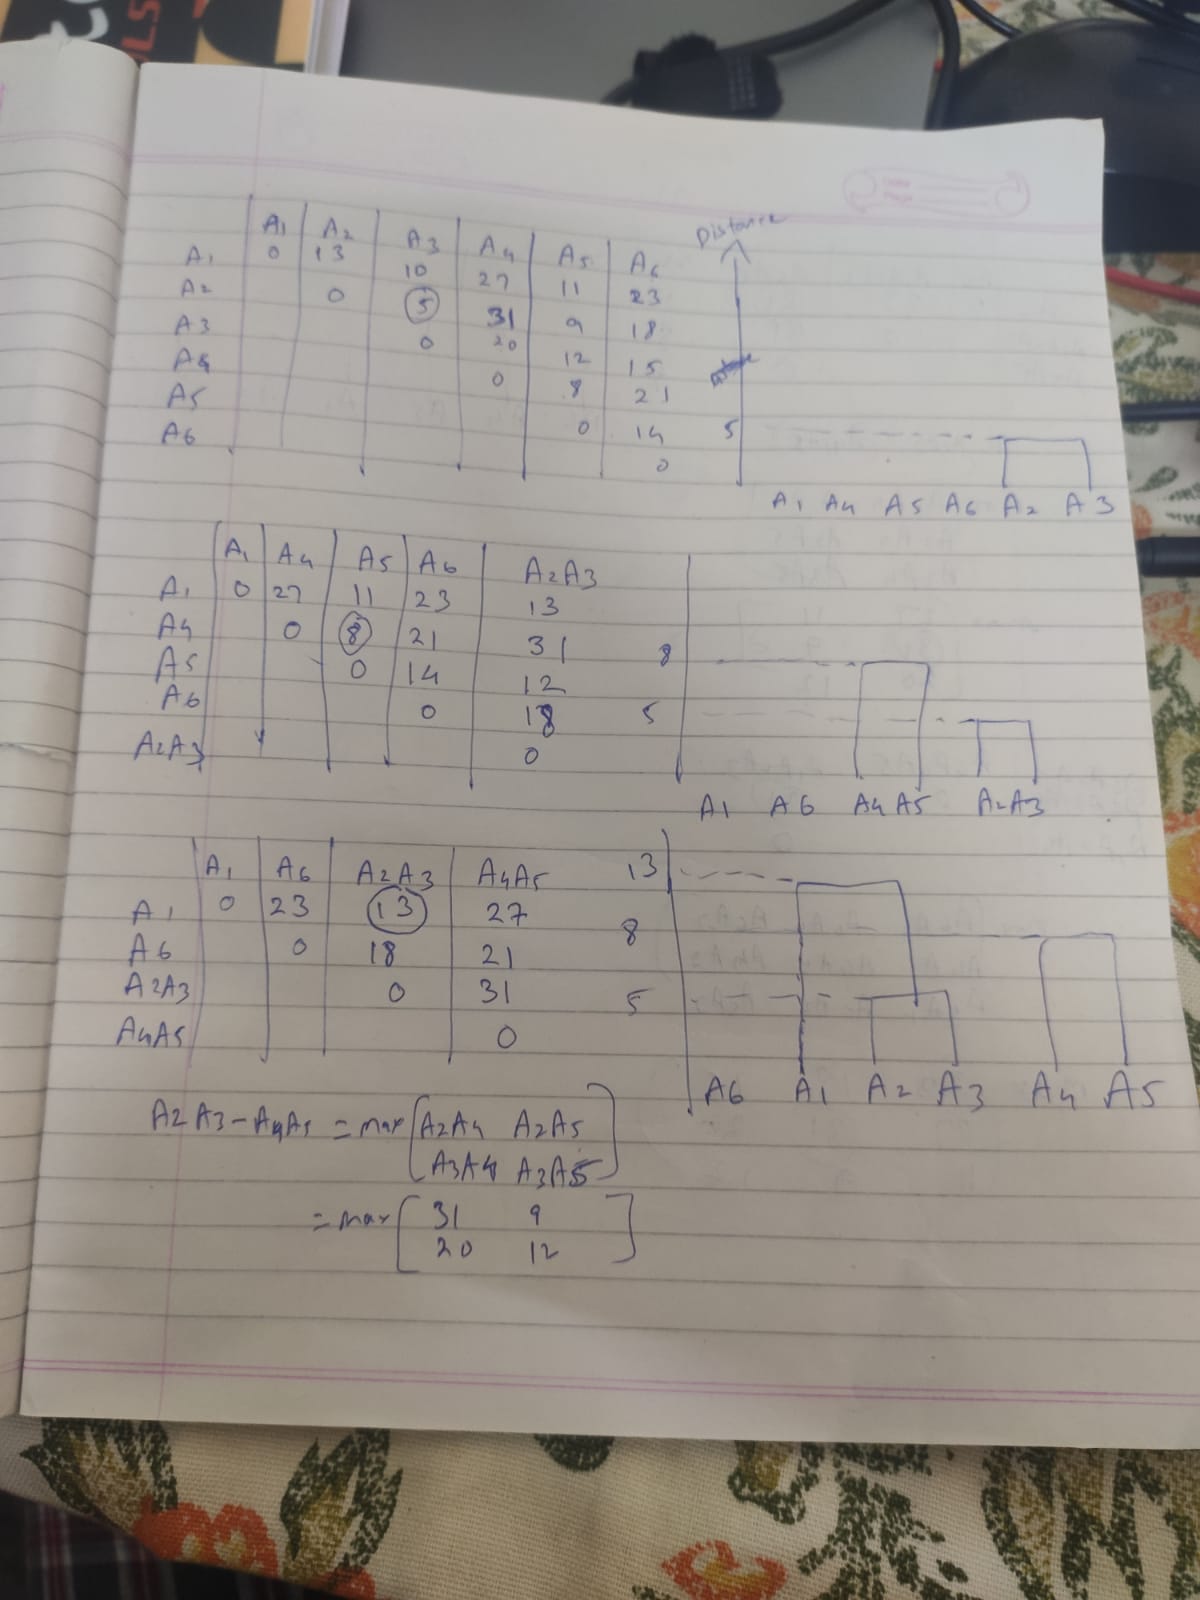 A1 A2 A3 A4 A5 A6
A1 0 13 10 27 11 23
A2 0 5 31 9 18
A3 0 20 12 15
A4 0 8 21
A5 0 14
A6 0
Distance
5
A1 A4 A5 A6 A2 A3
A1 A4 A5 A6 A2A3
A1 0 27 11 23 13
A4 0 8 21 31
A5 0 14 12
A6 0 18
A2A3 0
8
5
A1 A6 A4 A5 A2A3
A1 A6 A2A3 A4A5
A1 0 23 13 27
A6 0 18 21
A2A3 0 31
A4A5 0
13
8
5
A6 A1 A2 A3 A4 A5
A2A3-A4A5 = max [A2A4 A2A5
A3A4 A3A5]
= max [31 9
20 12]